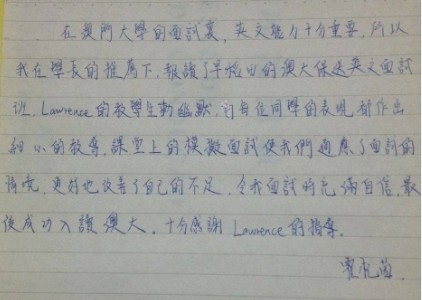 在澳門大學的面試裏，英文能力十分重要，所以
我在學長的推薦下，報讀了早梔田的澳大保送英文面試
班．Lawrence的教學生動幽默，對每位同學的表現都作出
細心的教導，課堂上的模擬面試使我們適應了面試的
情境，更好地改善了自己的不足，令我面試時充滿自信，最
後成功入讀澳大，十分感謝 Lawrence 的指導．